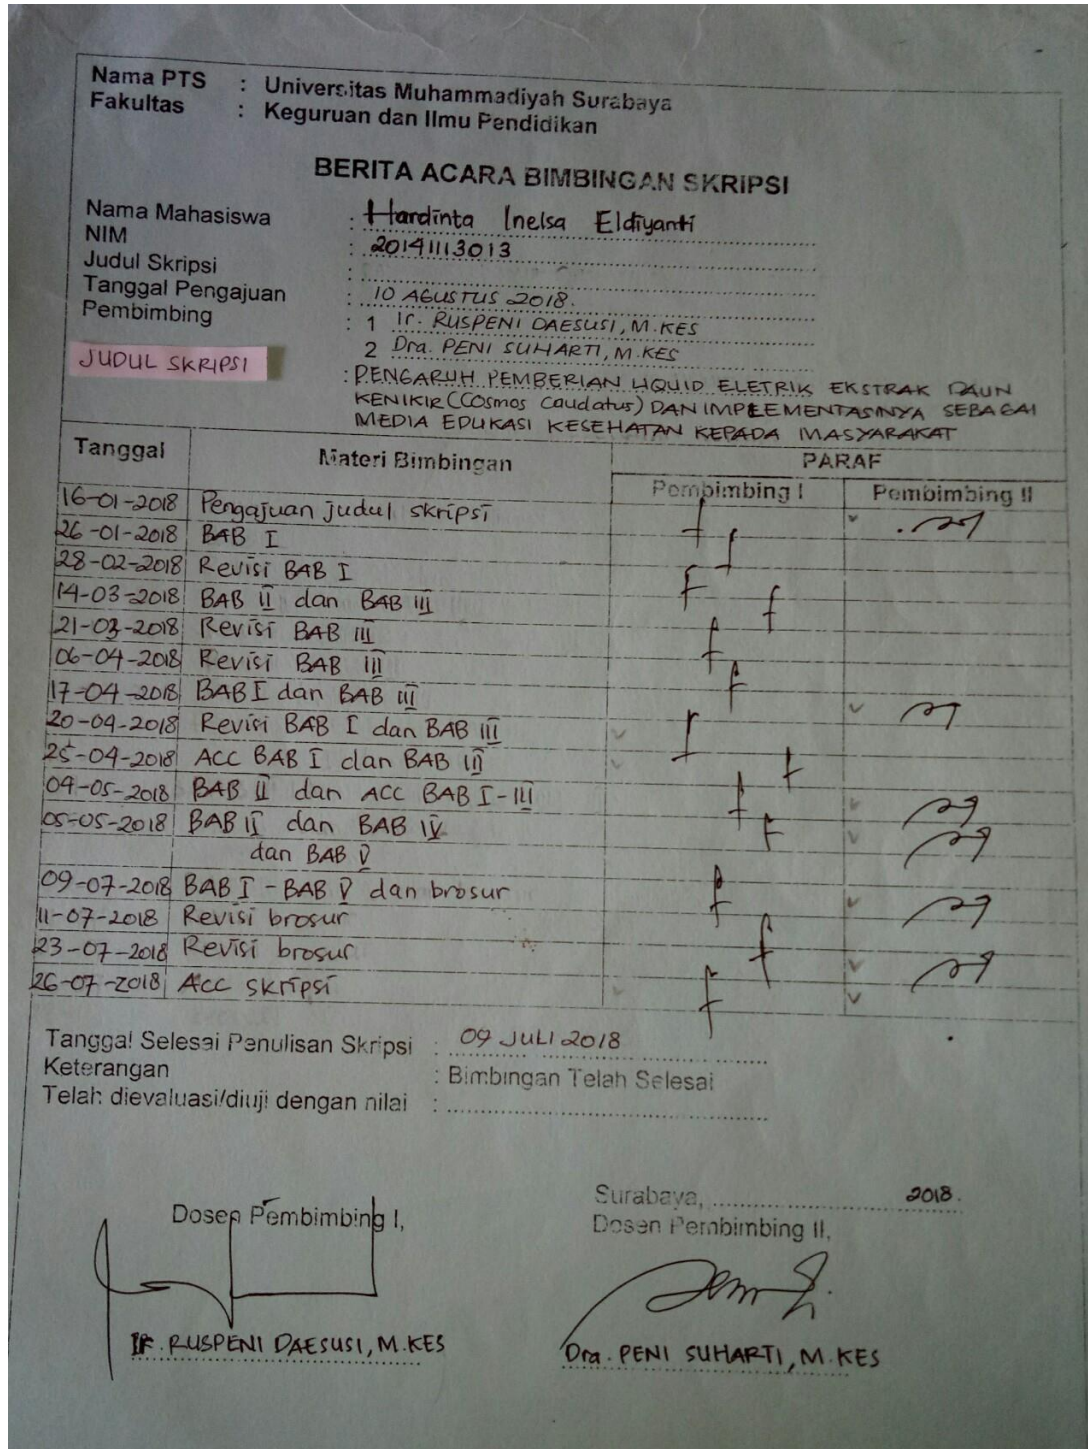 Nama PTS : Universitas Muhammadiyah Surabaya
Fakultas : Keguruan dan Ilmu Pendidikan
BERITA ACARA BIMBINGAN SKRIPSI
Nama Mahasiswa : Hardinta Inelsa Eldiyanti
NIM : 20141113013
Judul Skripsi :
Tanggal Pengajuan : 10 AGUSTUS 2018.
Pembimbing : 1 Ir. RUSPENI DAESUSI, M.KES
2 Dra. PENI SUHARTI, M.KES
JUDUL SKRIPSI : PENGARUH PEMBERIAN LIQUID ELETRIK EKSTRAK DAUN
KENIKIR (Cosmos Caudatus) DAN IMPLEMENTASINYA SEBAGAI
MEDIA EDUKASI KESEHATAN KEPADA MASYARAKAT
Tanggal Materi Bimbingan PARAF
Pembimbing I Pembimbing II
16-01-2018 Pengajuan judul skripsi
26-01-2018 BAB I
28-02-2018 Revisi BAB I
14-03-2018 BAB II dan BAB III
21-03-2018 Revisi BAB III
06-04-2018 Revisi BAB III
17-04-2018 BAB I dan BAB III
20-04-2018 Revisi BAB I dan BAB III
25-04-2018 ACC BAB I dan BAB III
04-05-2018 BAB II dan ACC BAB I-III
05-05-2018 BAB II dan BAB IV
dan BAB V
09-07-2018 BAB I - BAB V dan brosur
11-07-2018 Revisi brosur
23-07-2018 Revisi brosur
26-07-2018 Acc skripsi
Tanggal Selesai Penulisan Skripsi : 09 JULI 2018
Keterangan : Bimbingan Telah Selesai
Telah dievaluasi/diuji dengan nilai :
Surabaya, 2018.
Dosen Pembimbing I, Dosen Pembimbing II,
Ir. RUSPENI DAESUSI, M.KES Dra. PENI SUHARTI, M.KES